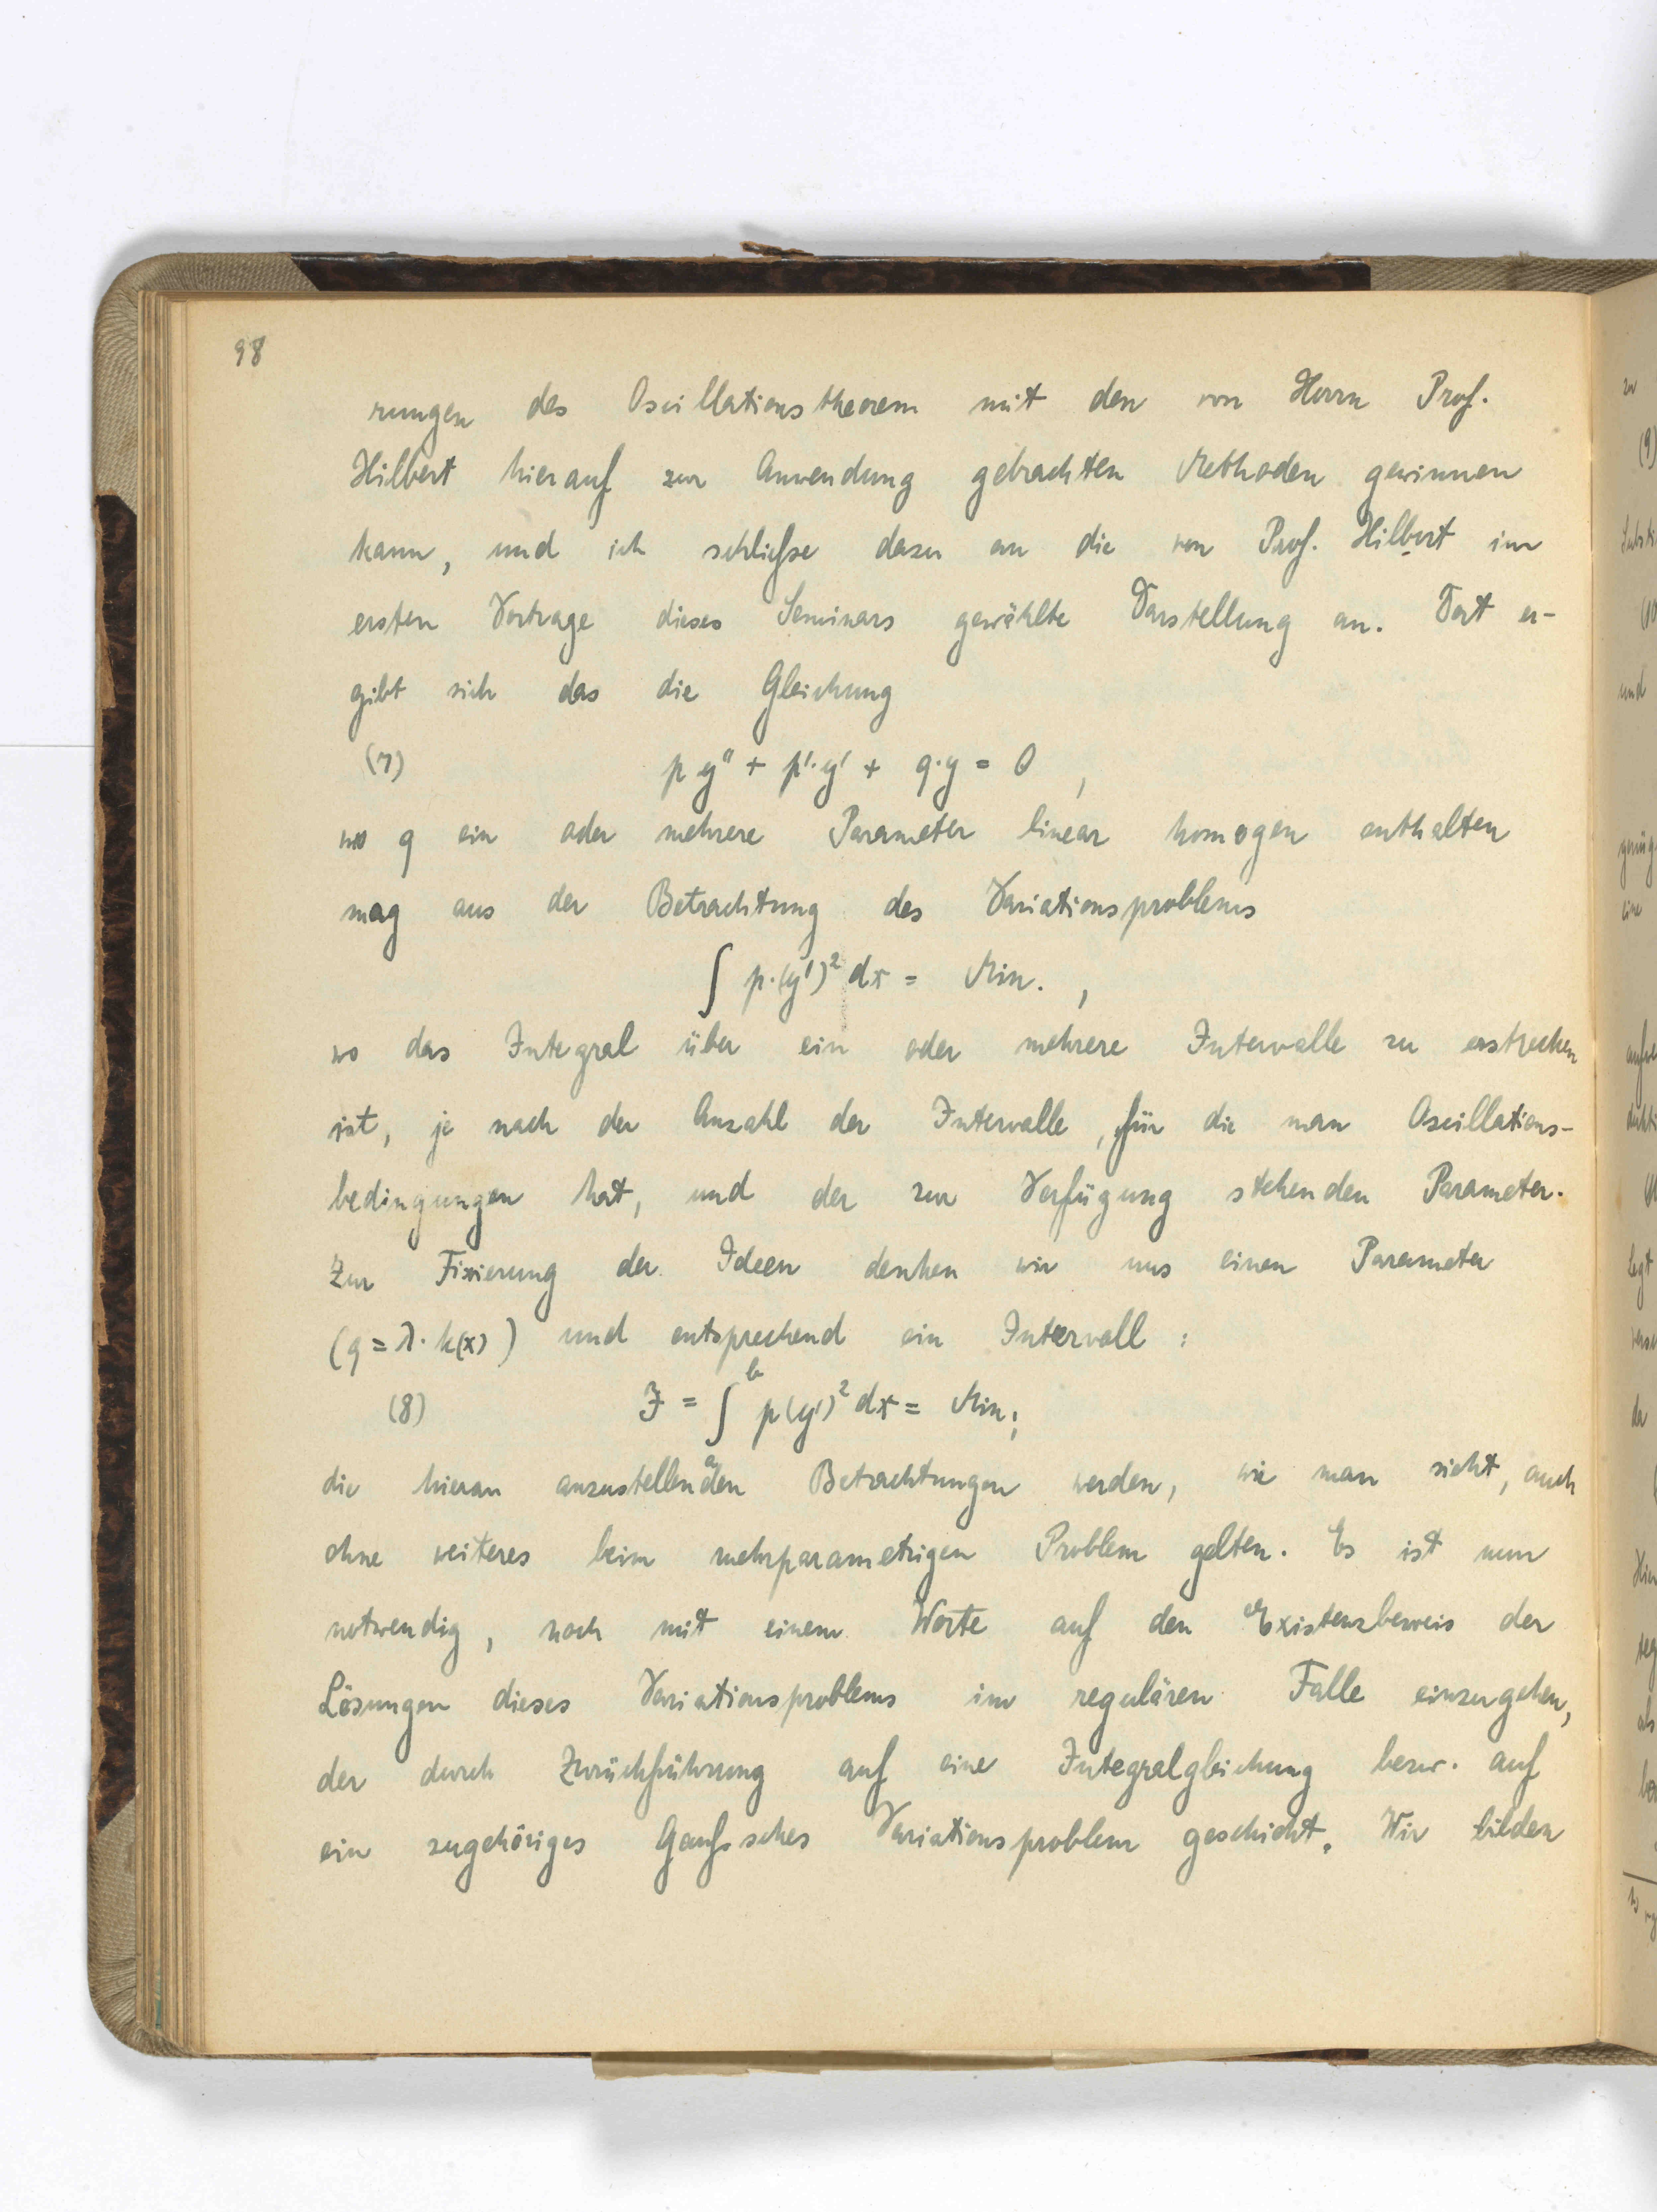 98
rungen des Oscillationstheorem mit den von Herrn Prof.
Hilbert hierauf zur Anwendung gebrachten Methoden gewinnen
kann, und ich schließe dazu an die von Prof. Hilbert im
ersten Vortrage dieses Seminars gewählte Darstellung an. Dort er-
gibt sich das die Gleichung
(7) p y'' + p'·y' + q·y = 0 ,
wo q ein oder mehrere Parameter linear homogen enthalten
mag aus der Betrachtung des Variationsproblems
∫ p·(y')² dx = Min. ,
wo das Integral über ein oder mehrere Intervalle zu erstrecken
ist, je nach der Anzahl der Intervalle, für die man Oscillations-
bedingungen hat, und der zur Verfügung stehenden Parameter.
Zur Fixierung der Ideen denken wir uns einen Parameter
(q = λ·k(x)) und entsprechend ein Intervall :
(8) J = ∫_a^b p(y')² dx = Min;
die hieran anzustellenden Betrachtungen werden, wie man sieht, auch
ohne weiteres beim mehrparametrigen Problem gelten. Es ist nun
notwendig, noch mit einem Worte auf den Existenzbeweis der
Lösungen dieses Variationsproblems im regulären Falle einzugehen,
der durch Zurückführung auf eine Integralgleichung bezw. auf
ein zugehöriges Gaußsches Variationsproblem geschieht. Wir bilden